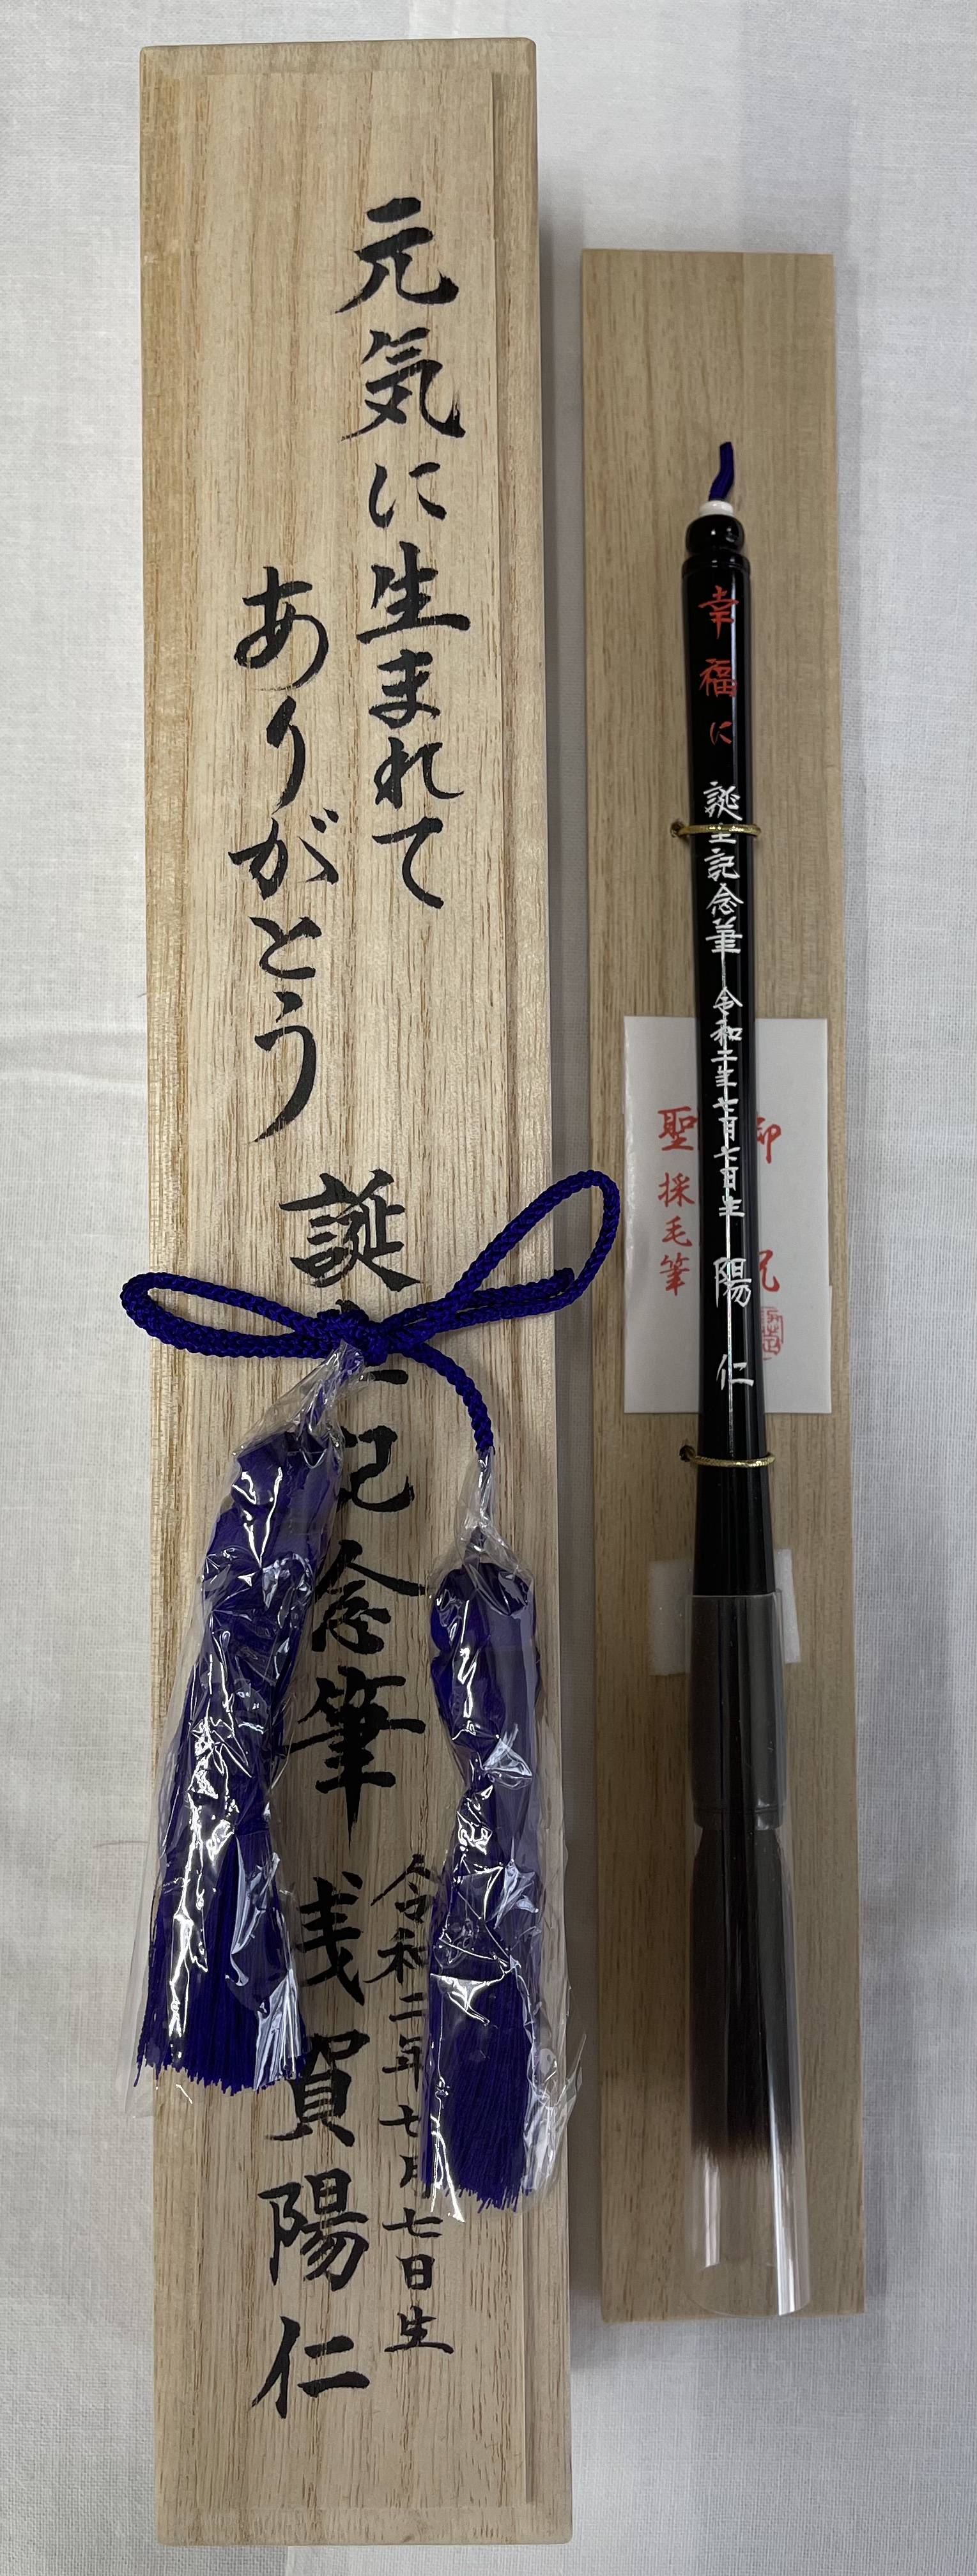 元気に生まれて
ありがとう
誕生記念筆
令和二年七月七日生
浅賀陽仁
幸福に 誕生記念筆 令和二年七月七日生 陽仁
聖採毛筆